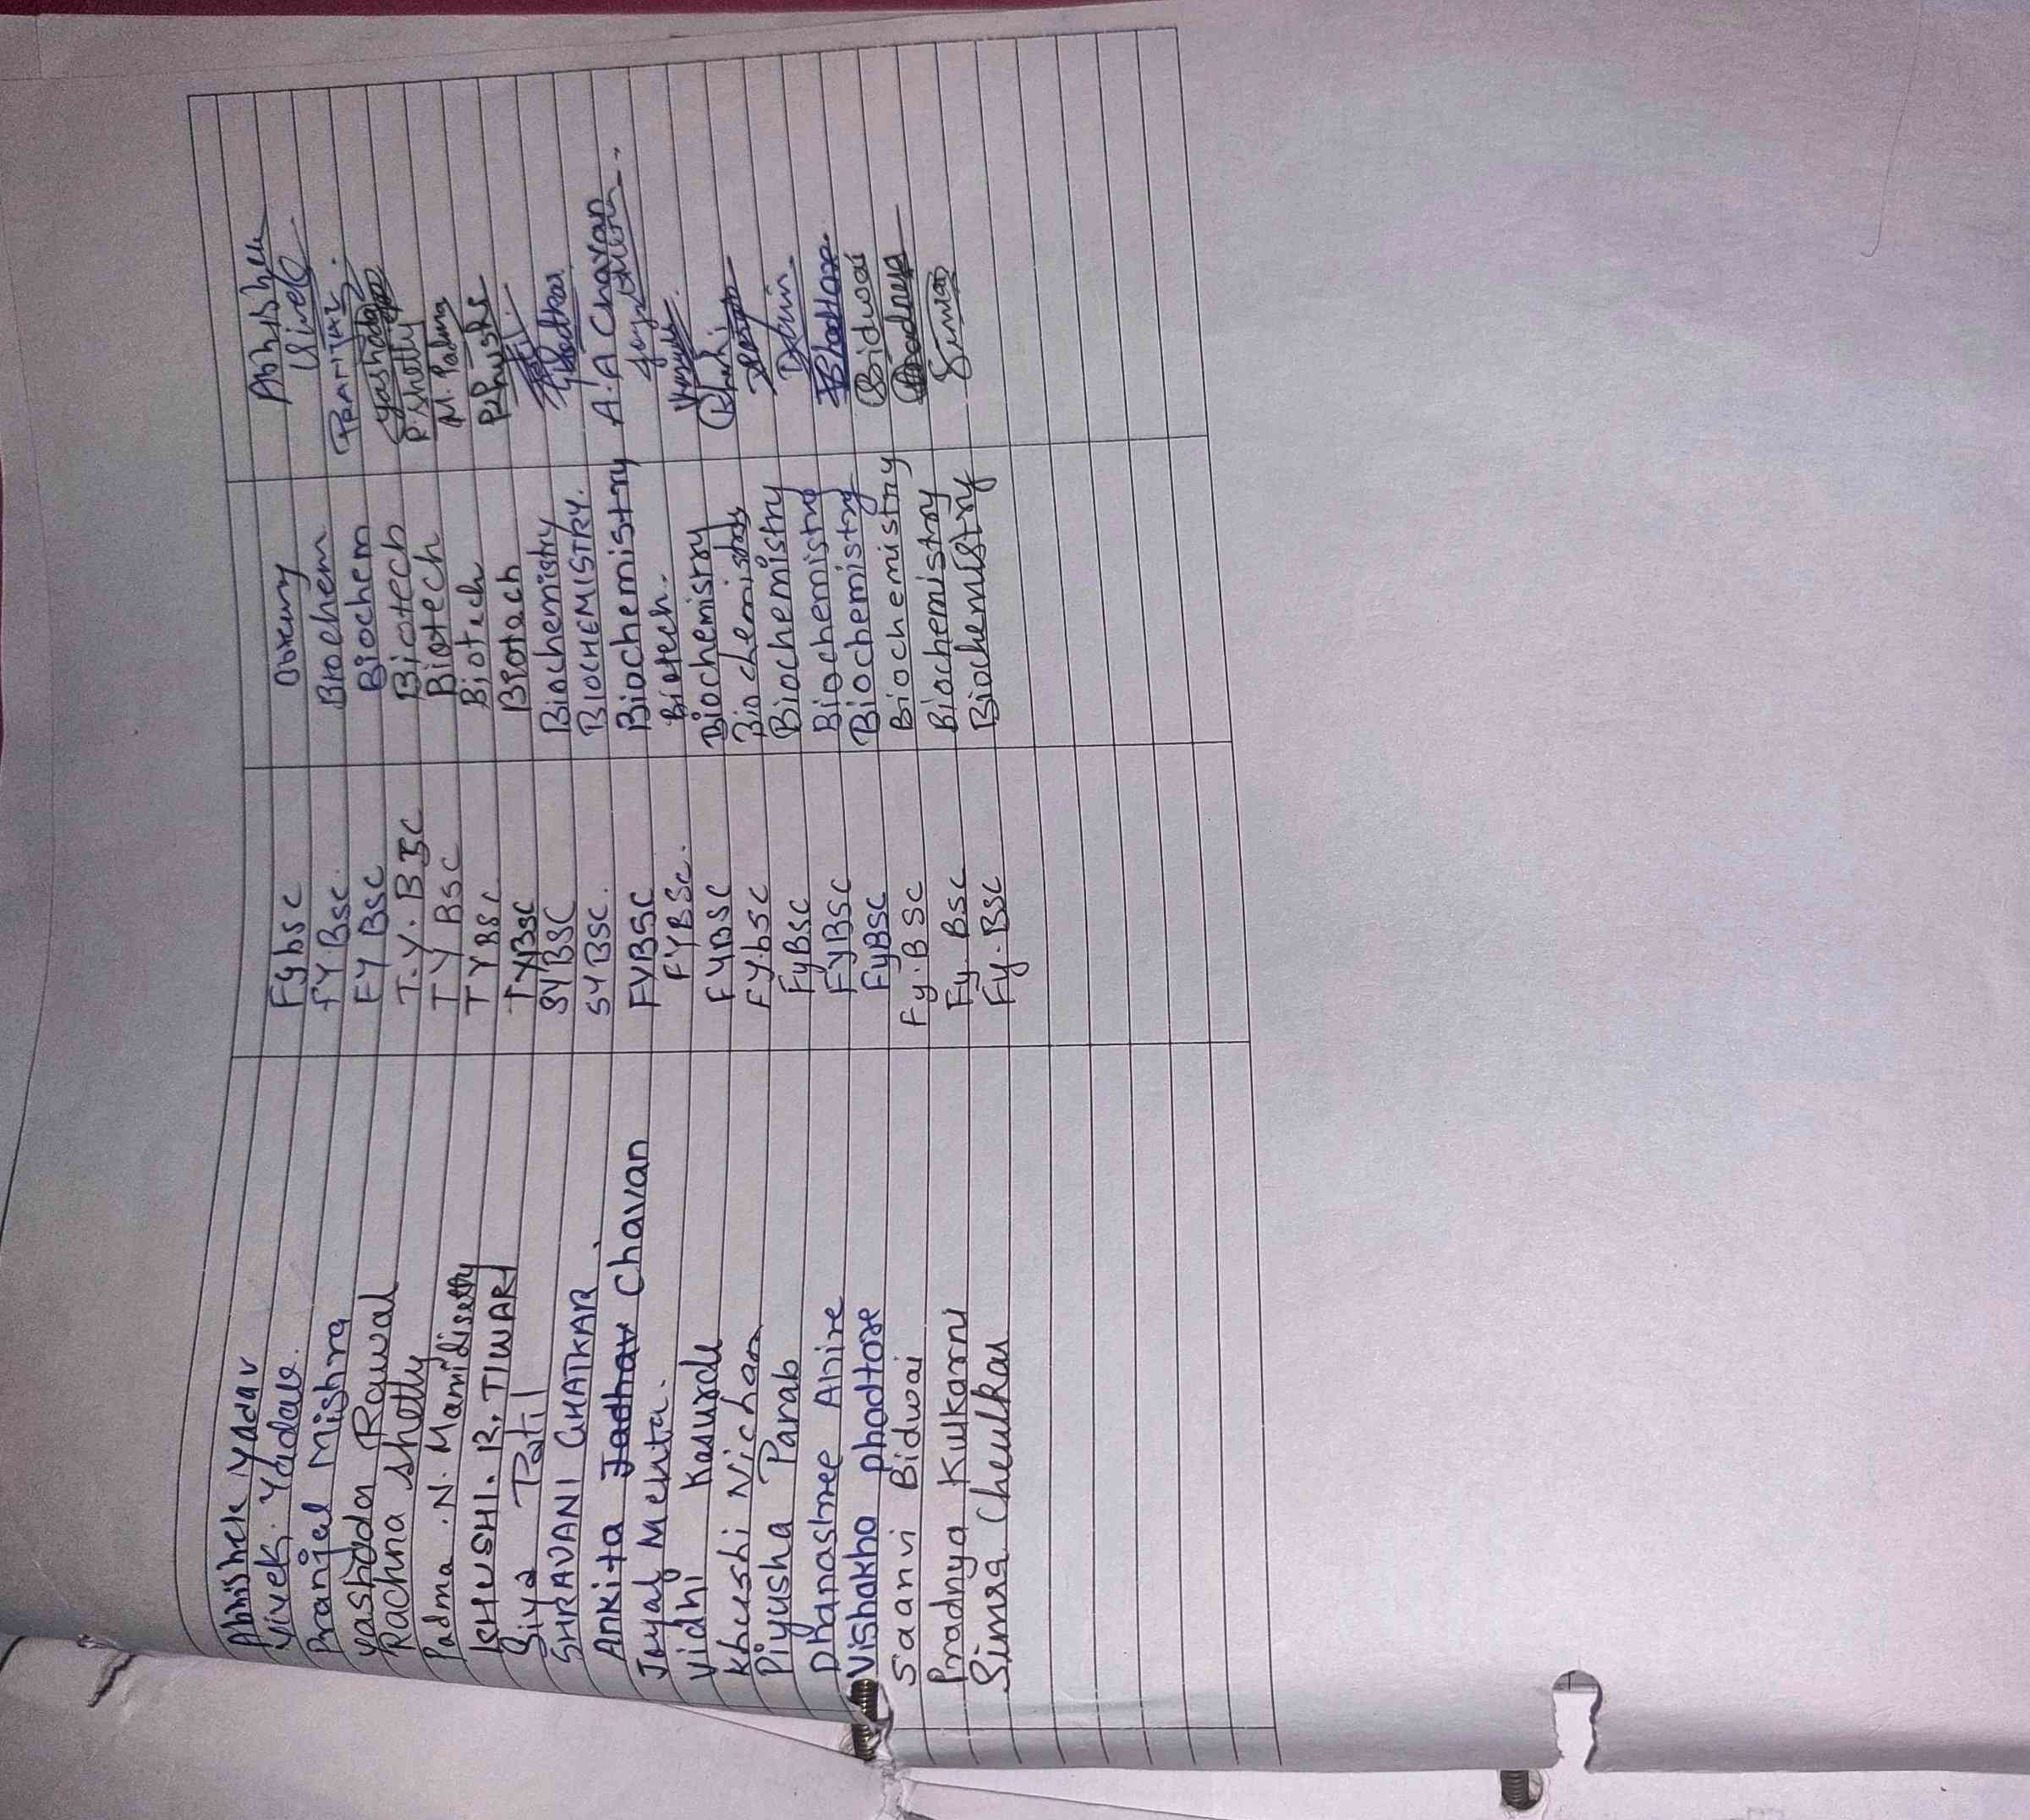 Abhishek Yadav FybSC Abhishek
Vivek. Yadav. FY.Bsc. Biochem Vivek
Pranjal Mishra FY BSC Biochem PRANJAL
Yashoda Rawal T.Y. BSC Biotech Yashoda
Rachna Shetty TY BSC Biotech R Shetty
Padma . N. Mamidisetty TY BSC Biotech M. Padma
KHUSHI. R. TIWARI TYBSC Biotech Khushi
Siya Patil SYBSC Biochemistry
SHRAVANI GHATKAR. SYBSC. BIOCHEMISTRY. Ghatkar
Ankita Jadhav Chavan FYBSC Biochemistry A.A Chavan
Jayal Mehta. FYBSc. Biotech.
Vidhi Kasurde FYBSC Biochemistry
Khushi Nichan FY.bSC Biochemistry Khushi
Piyusha Parab FyBSC Biochemistry
Dhanashree Ahire FYBSC Biochemistry
Vishakha phadtare FyBSC Biochemistry Phadtare
Saanvi Bidwai Fy.BSC Biochemistry Bidwai
Pradnya Kulkarni Fy.BSC Biochemistry Pradnya
Simra Cheulkar Fy.BSC Biochemistry Simra